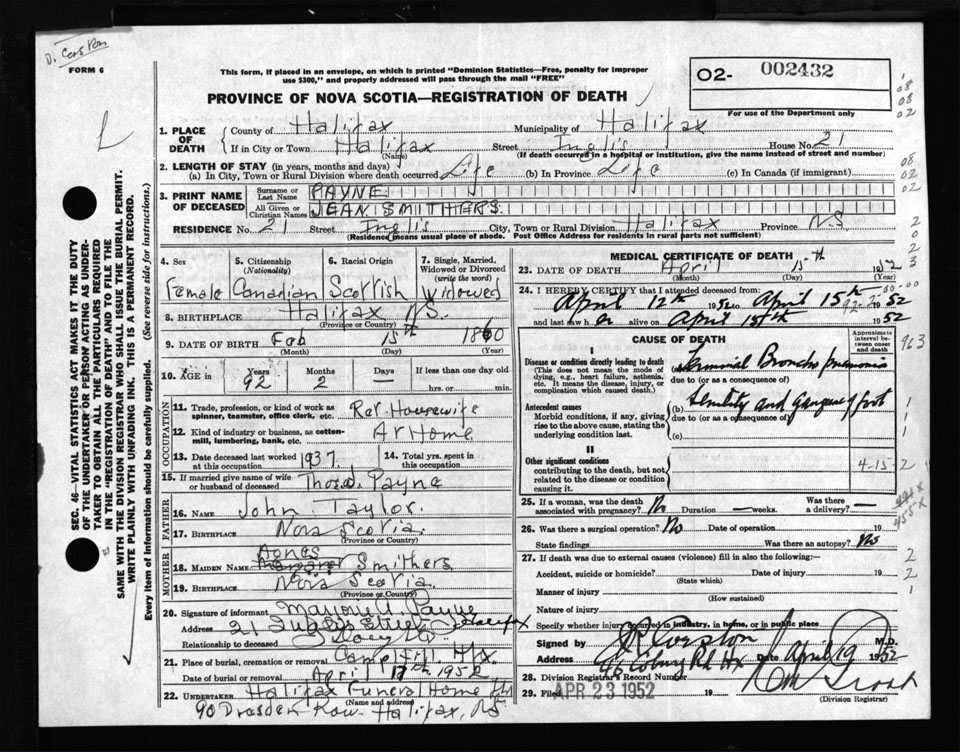 D. Corston
FORM 6
This form, if placed in an envelope, on which is printed "Dominion Statistics—Free, penalty for improper
use $300," and properly addressed will pass through the mail "FREE"
PROVINCE OF NOVA SCOTIA—REGISTRATION OF DEATH
O2- 002432
For use of the Department only
1. PLACE OF DEATH
County of Halifax Municipality of Halifax
If in City or Town Halifax Street Inglis House No. 21
(Name) (If death occurred in a hospital or institution, give the name instead of street and number)
2. LENGTH OF STAY (in years, months and days)
(a) In City, Town or Rural Division where death occurred Life (b) In Province Life (c) In Canada (if immigrant)
3. PRINT NAME OF DECEASED
Surname or Last Name PAYNE
All Given or Christian Names JEAN SMITHERS.
RESIDENCE No. 21 Street Inglis City, Town or Rural Division Halifax Province NS
(Residence means usual place of abode. Post Office Address for residents in rural parts not sufficient)
4. Sex 5. Citizenship (Nationality) 6. Racial Origin 7. Single, Married, Widowed or Divorced (write the word)
Female Canadian Scottish Widowed
8. BIRTHPLACE Halifax NS.
(Province or Country)
9. DATE OF BIRTH Feb 15 1860
(Month) (Day) (Year)
10. AGE in Years 92 Months 2 Days — If less than one day old
hrs. or min.
OCCUPATION
11. Trade, profession, or kind of work as spinner, teamster, office clerk, etc. Ret. Housewife
12. Kind of industry or business, as cotton-mill, lumbering, bank, etc. At Home
13. Date deceased last worked at this occupation 1937. 14. Total yrs. spent in this occupation
15. If married give name of wife or husband of deceased Thos. Payne
FATHER
16. Name John Taylor.
17. Birthplace Nova Scotia.
(Province or Country)
MOTHER
Agnes
18. Maiden Name Margaret Smithers
19. Birthplace Nova Scotia.
(Province or Country)
20. Signature of informant Marjorie A. Payne
Address 21 Inglis Street Halifax
Relationship to deceased
21. Place of burial, cremation or removal Camp Hill Hfx.
Date of burial or removal April 17th 1952
22. UNDERTAKER Halifax Funeral Home
(Name and address)
90 Dresden Row Halifax, NS
MEDICAL CERTIFICATE OF DEATH
23. DATE OF DEATH April 15th 1952
(Month) (Day)
24. I HEREBY CERTIFY that I attended deceased from:
April 12th 1952 to April 15th 1952
and last saw h er alive on April 15th 1952
CAUSE OF DEATH
Approximate interval between onset and death
I
Disease or condition directly leading to death
(This does not mean the mode of dying, e.g., heart failure, asthenia, etc. It means the disease, injury, or complication which caused death.)
Terminal Broncho pneumonia
due to (or as a consequence of)
Antecedent causes
Morbid conditions, if any, giving rise to the above cause, stating the underlying condition last.
(b) Senility and Gangrene of foot
due to (or as a consequence of)
(c)
II
Other significant conditions
contributing to the death, but not related to the disease or condition causing it.
4-15-2
25. If a woman, was the death associated with pregnancy? No Duration — weeks. Was there a delivery? —
26. Was there a surgical operation? No Date of operation 19
State findings Was there an autopsy? No
27. If death was due to external causes (violence) fill in also the following:—
Accident, suicide or homicide? Date of injury 19
(State which)
Manner of injury
(How sustained)
Nature of injury
Specify whether injury occurred in industry, in home, or in public place
Signed by Corston M.D.
Address Coburg Rd Hx Date April 19 1952
28. Division Registrar's Record Number
29. Filed APR 23 1952 19
(Division Registrar)
SEC. 46—VITAL STATISTICS ACT MAKES IT THE DUTY
OF THE UNDERTAKER OR PERSON ACTING AS UNDER-
TAKER TO OBTAIN ALL THE PARTICULARS REQUIRED
IN THE "REGISTRATION OF DEATH" AND TO FILE THE
SAME WITH THE DIVISION REGISTRAR WHO SHALL ISSUE THE BURIAL PERMIT.
WRITE PLAINLY WITH UNFADING INK. THIS IS A PERMANENT RECORD.
Every item of information should be carefully supplied. (See reverse side for instructions.)